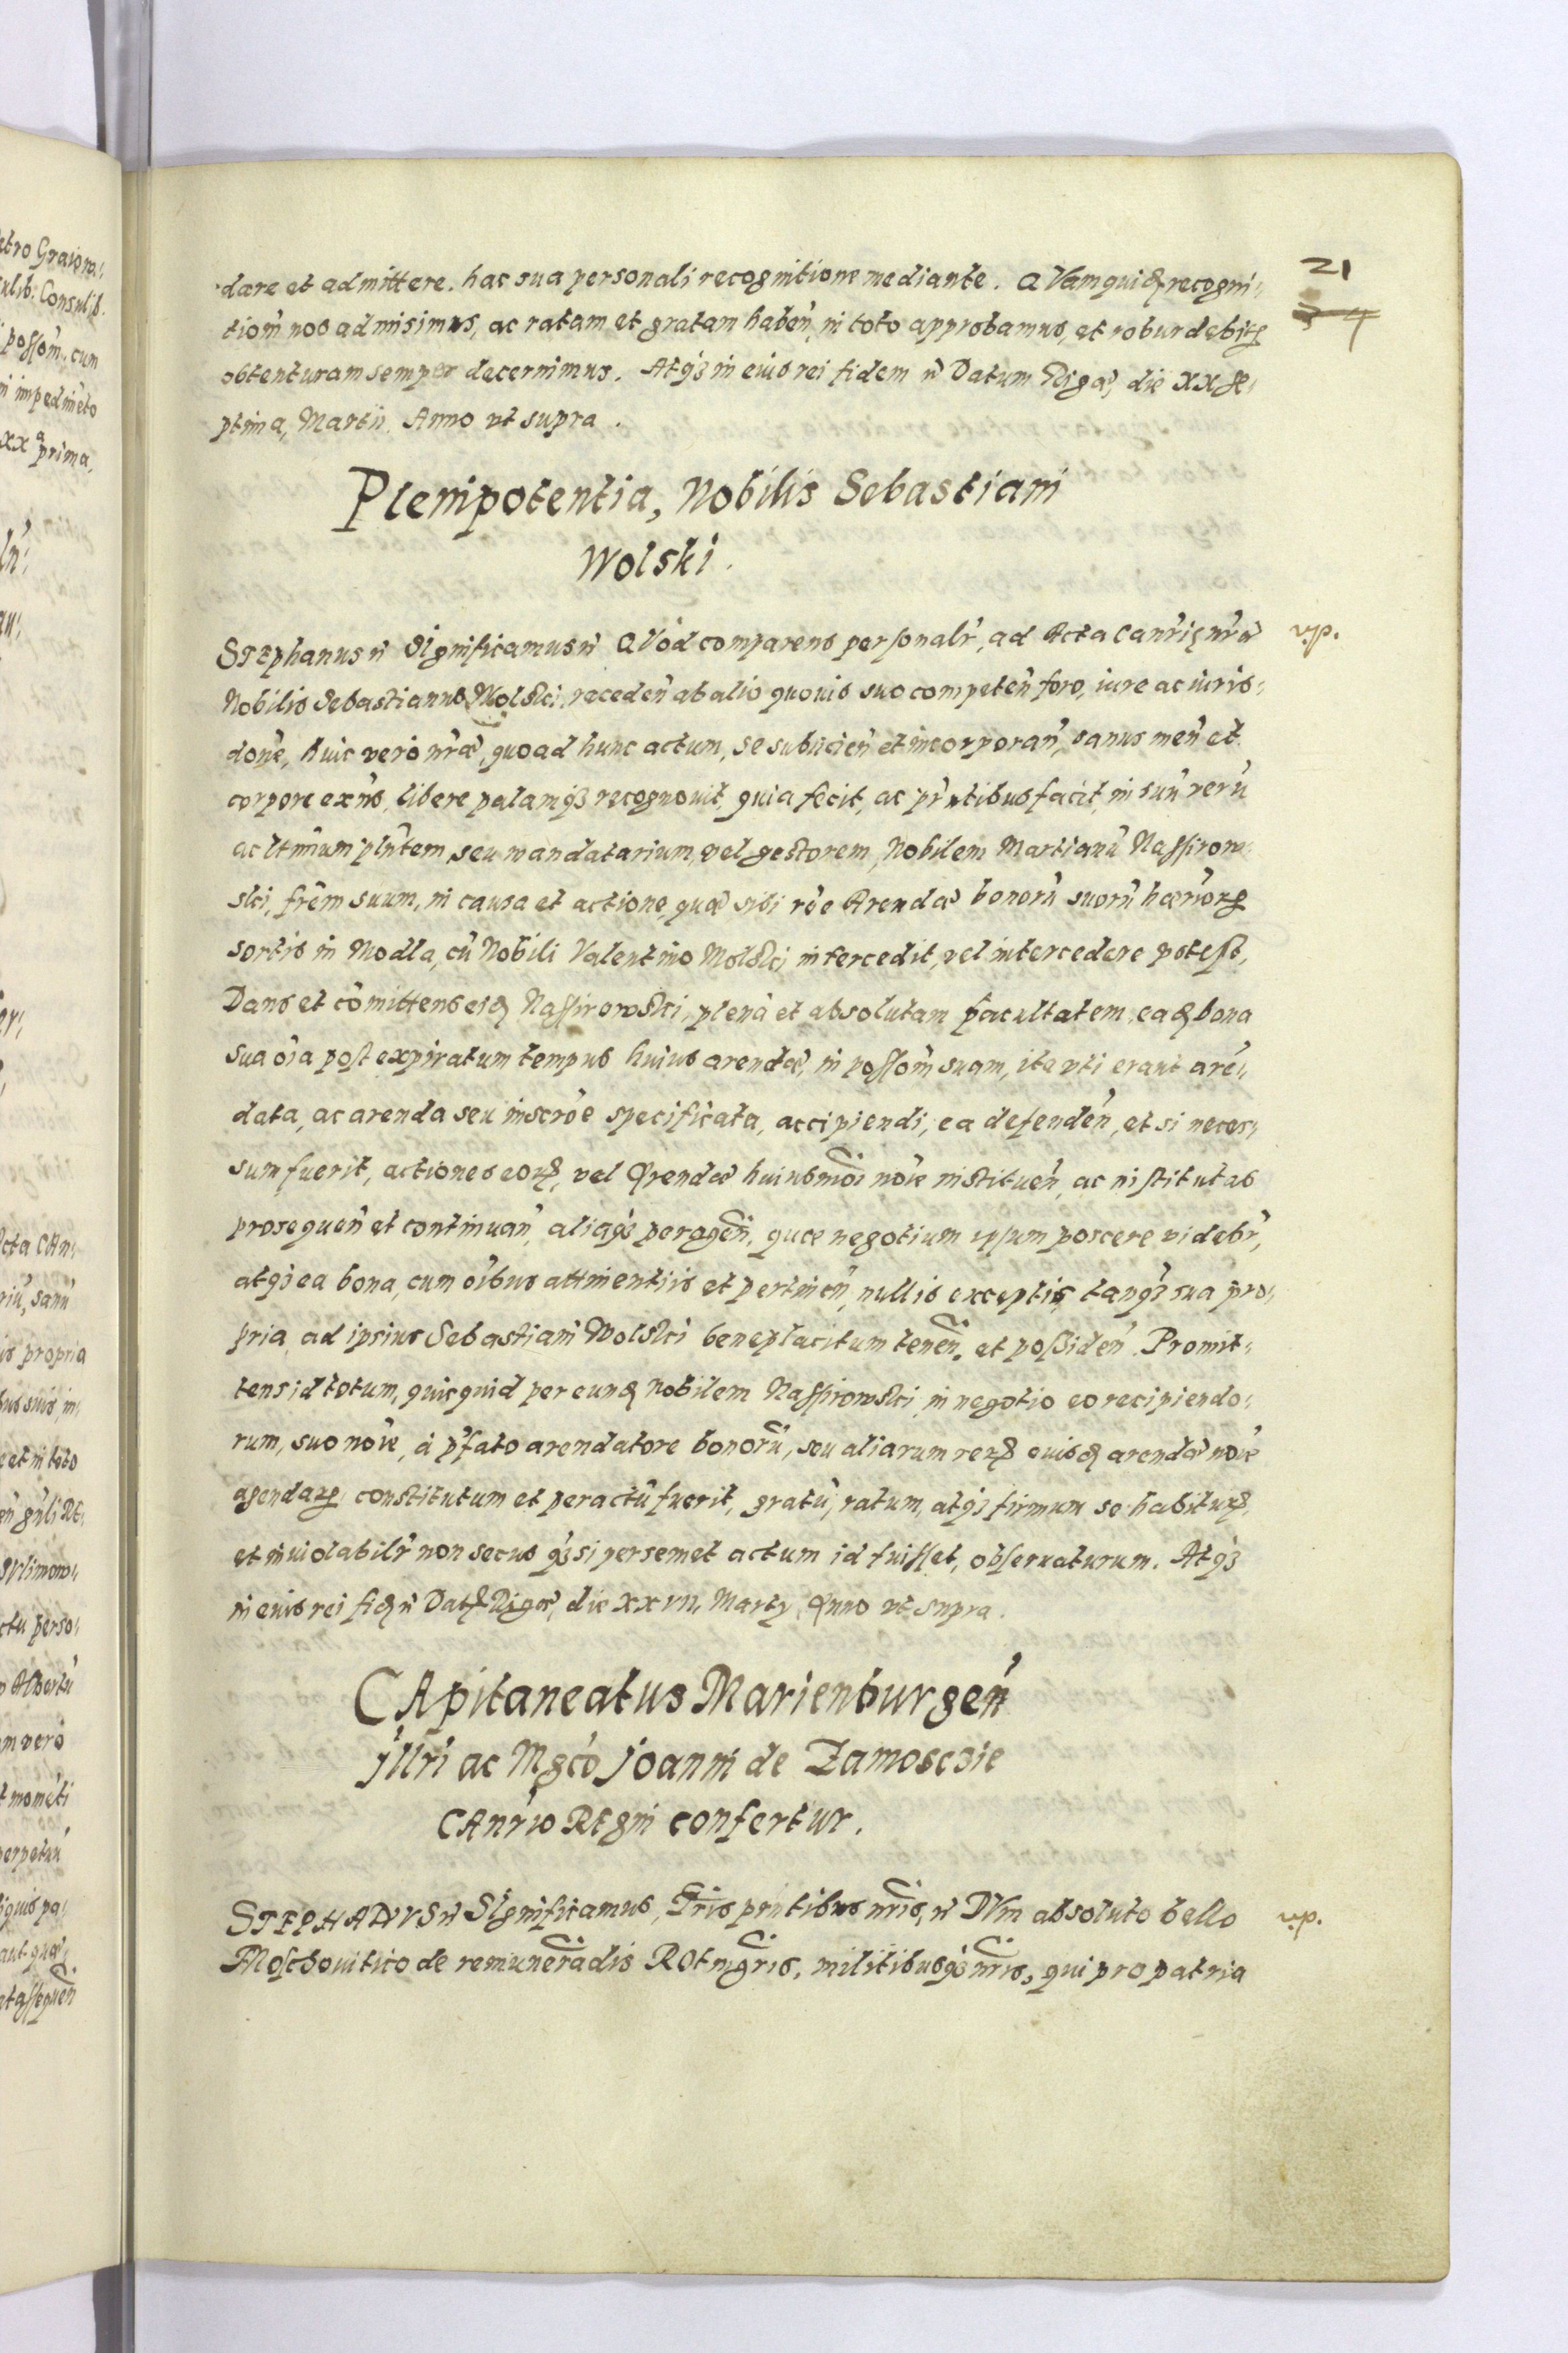 21
dare et admittere. hac sua personali recognitione mediante. QVam quidẽ recogni„
tiom̃ nos admisimus, ac ratam et gratam haben̄, in toto approbamus, et robur debitꝫ
obtenturam semper decernimus. Atqꝫ in eius rei fidem ẽ Datum Rigæ, die XX Se„
ptima, Martii. Anno vt supra.
Plenipotentia, Nobilis Sebastiani
Wolski.
STEphanus ẽ Significamus ẽ QVod comparens personalr̃, ad Acta Canr̃iꝫ nr̃æ
Nobilis Sebastianus Wolski, receden̄ ab alio quouis suo competen̄ foro, iure ac iuris„
done, huic vero nr̃æ, quoad hunc actum, se subiicien̄ et incorporan̄, sanus men̄ et
corpore exñs, libere palamqꝫ recognouit, quia fecit, ac pr̃ntibus facit, in suũ verũ
ac ltm̃um plñtem, seu mandatarium, vel gestorem, Nobilem Martianũ Nassirow„
ski, frẽm suum, in causa et actione quæ sibi rõe Arendæ bonorũ suorũ hær̃iorꝫ
sortis in Modla, cũ Nobili Valentino Wolski intercedit, vel intercedere potest,
Dans et cõmittens eidẽ Nassirowski, plenã et absolutam facultatem, eadẽ bona
sua oĩa post expiratum tempus huius arendæ, in possom̃ suam, ita vti erant arẽ„
data, ac arenda seu inscrõe specificata, accipiendi, ea defenden̄, et si neces„
sum fuerit, actiones eorꝫ, vel Arendæ huiusmõi noĩe instituen̄, ac institutas
prosequen̄ et continuan̄, aliaqꝫ peragen̄, quæ negotium ipsum poscere videbr̃,
atqꝫ ea bona, cum oĩbus attinentiis et pertinen̄, nullis exceptis, tanqꝫ sua pro„
pria, ad ipsius Sebastiani Wolski beneplacitum tenen̄. et possiden̄. Promit„
tens id totum, quicquid per eundẽ Nobilem Nassirowski, in negotio eo recipiendo„
rum, suo noĩe, à pr̃fato arendatore bonorũ, seu aliarum rerꝫ eiusdẽ arendæ noĩe
agendarꝫ, constitutum et peractũ fuerit, gratũ, ratum, atqꝫ firmum se habiturꝫ,
et inuiolabilr̃ non secus qꝫ si persemet actum id fuisset, obseruaturum. Atqꝫ
in eius rei fidẽ ẽ Datꝫ Rigæ, die XXVII, Martij Anno vt supra.
CApitaneatus Marienburgen̄
Jllri ac Mgco Joanni de Zamosczie
CAnr̃io Regni confertur.
STEPHANVS ẽ Significamus, Lr̃is prñtibus nr̃is, ẽ DVm absoluto bello
Moschouitico de remunerãdis ROtmgr̃is, militibusqꝫ nr̃is, qui pro patria